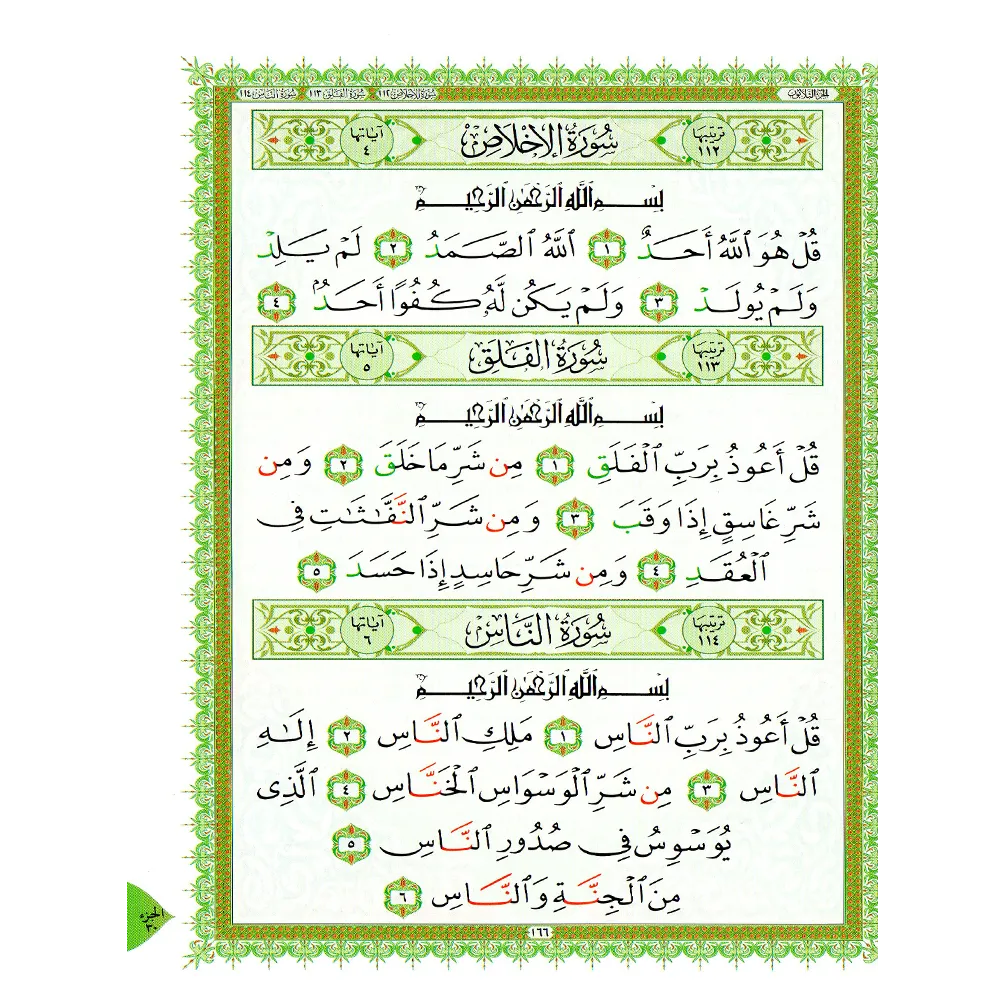 الجزء الثلاثون سُورَةُ الإِخْلَاصِ ١١٢ سُورَةُ الفَلَقِ ١١٣ سُورَةُ النَّاسِ ١١٤
ترتيبها ١١٢ سُورَةُ الإِخْلَاصِ آياتها ٤
بِسْمِ ٱللَّهِ ٱلرَّحْمَٰنِ ٱلرَّحِيمِ
قُلْ هُوَ ٱللَّهُ أَحَدٌ ١ ٱللَّهُ ٱلصَّمَدُ ٢ لَمْ يَلِدْ
وَلَمْ يُولَدْ ٣ وَلَمْ يَكُن لَّهُۥ كُفُوًا أَحَدٌۢ ٤
ترتيبها ١١٣ سُورَةُ الفَلَقِ آياتها ٥
بِسْمِ ٱللَّهِ ٱلرَّحْمَٰنِ ٱلرَّحِيمِ
قُلْ أَعُوذُ بِرَبِّ ٱلْفَلَقِ ١ مِن شَرِّ مَا خَلَقَ ٢ وَمِن
شَرِّ غَاسِقٍ إِذَا وَقَبَ ٣ وَمِن شَرِّ ٱلنَّفَّٰثَٰتِ فِى
ٱلْعُقَدِ ٤ وَمِن شَرِّ حَاسِدٍ إِذَا حَسَدَ ٥
ترتيبها ١١٤ سُورَةُ النَّاسِ آياتها ٦
بِسْمِ ٱللَّهِ ٱلرَّحْمَٰنِ ٱلرَّحِيمِ
قُلْ أَعُوذُ بِرَبِّ ٱلنَّاسِ ١ مَلِكِ ٱلنَّاسِ ٢ إِلَٰهِ
ٱلنَّاسِ ٣ مِن شَرِّ ٱلْوَسْوَاسِ ٱلْخَنَّاسِ ٤ ٱلَّذِى
يُوَسْوِسُ فِى صُدُورِ ٱلنَّاسِ ٥
مِنَ ٱلْجِنَّةِ وَٱلنَّاسِ ٦
الجزء
٣٠
١٦٦